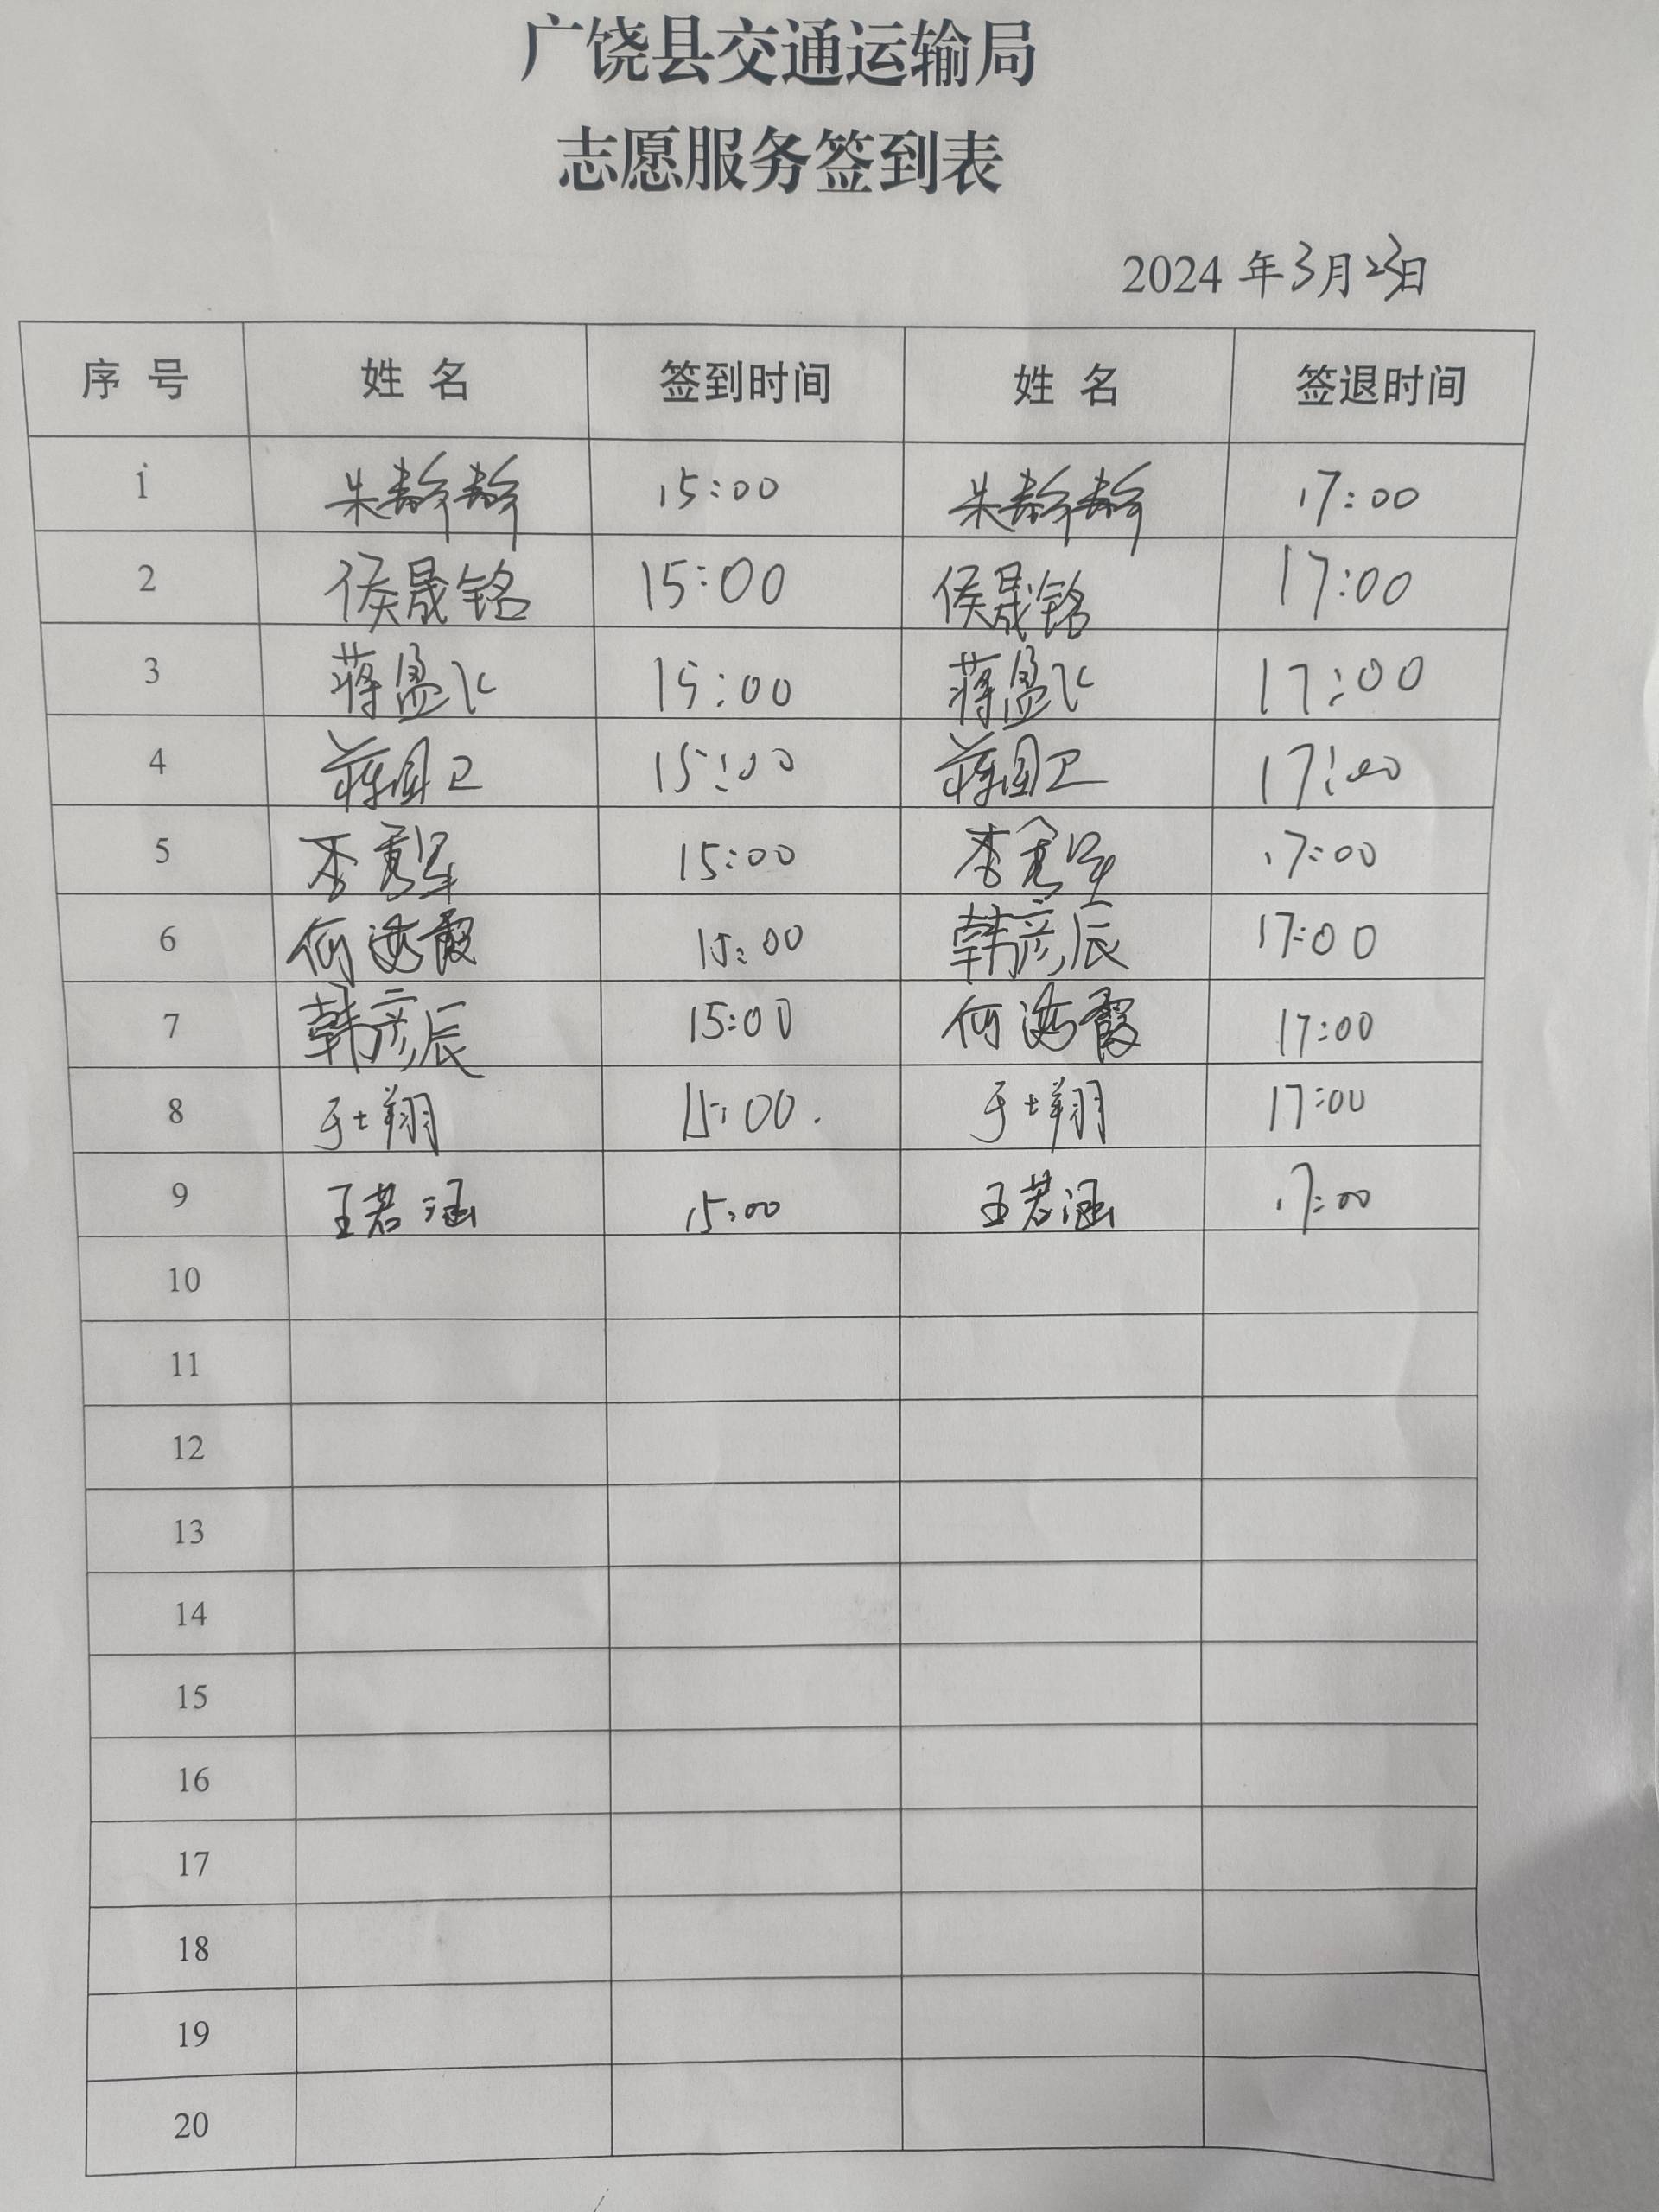 广饶县交通运输局
志愿服务签到表
2024 年3月23日
序 号 姓 名 签到时间 姓 名 签退时间
1 朱 15:00 朱 17:00
2 侯晟铭 15:00 侯晟铭 17:00
3 蒋盈 15:00 蒋盈 17:00
4 蒋国卫 15:00 蒋国卫 17:00
5 李 15:00 李 17:00
6 何海霞 15:00 韩彦辰 17:00
7 韩彦辰 15:00 何海霞 17:00
8 于士翔 15:00 于士翔 17:00
9 王若涵 15:00 王若涵 17:00
10
11
12
13
14
15
16
17
18
19
20